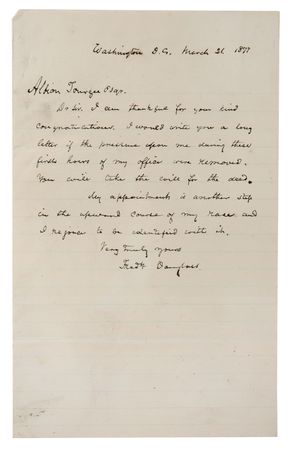 Washington D.C. March 21 1877
Albion Tourgee Esqr.
Dr Sir. I am thankful for your kind
congratulations. I would write you a long
letter if the pressure upon me during these
first hours of my office were removed.
You will take the will for the deed.
My appointment is another step
in the upward course of my race and
I rejoice to be identified with it.
Very truly yours
Fredk Douglass